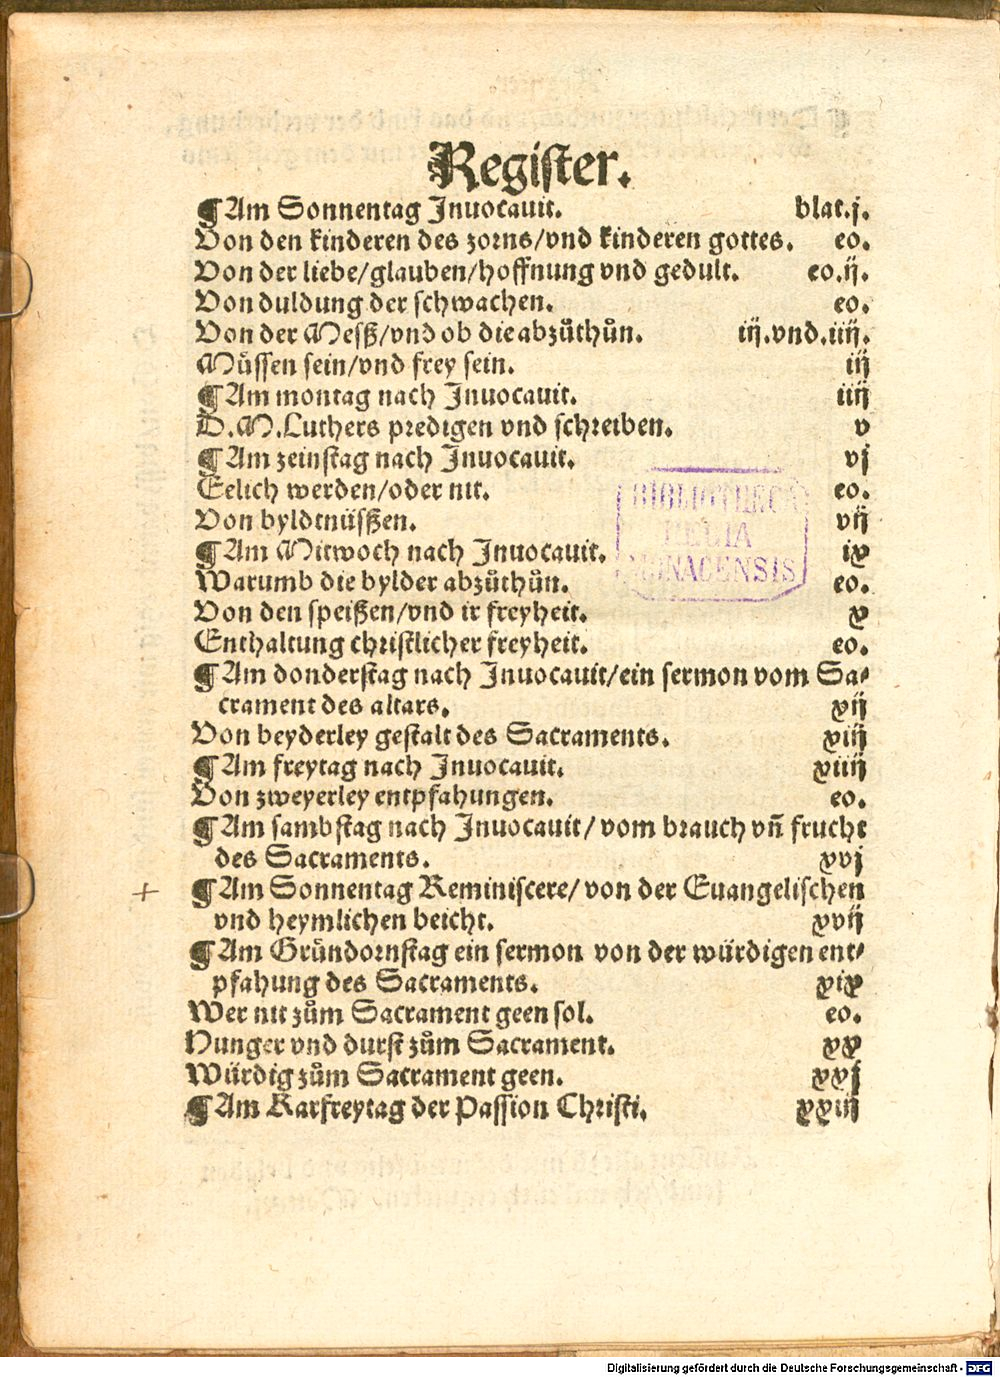 Register.
¶ Am Sonnentag Inuocauit. blat.j.
Von den kinderen des zorns/vnd kinderen gottes. eo.
Von der liebe/glauben/hoffnung vnd gedult. eo.ij.
Von duldung der schwachen. eo.
Von der Messz/vnd ob die abzůthůn. iij.vnd.iiij.
Müssen sein/vnd frey sein. iij
¶ Am montag nach Inuocauit. iiij
D.M.Luthers predigen vnd schreiben. v
¶ Am zeinstag nach Inuocauit. vj
Eelich werden/oder nit. eo.
Von byldtnüßen. vij
¶ Am Mitwoch nach Inuocauit. ix
Warumb die bylder abzůthůn. eo.
Von den speißen/vnd ir freyheit. x
Enthaltung christlicher freyheit. eo.
¶ Am donderstag nach Inuocauit/ein sermon vom Sa-
crament des altars. xij
Von beyderley gestalt des Sacraments. xiij
¶ Am freytag nach Inuocauit. xiiij
Von zweyerley entpfahungen. eo.
¶ Am sambstag nach Inuocauit/ vom brauch vñ frucht
des Sacraments. xvj
+ ¶ Am Sonnentag Reminiscere/ von der Euangelischen
vnd heymlichen beicht. xvij
¶ Am Gründornstag ein sermon von der würdigen ent-
pfahung des Sacraments. xix
Wer nit zům Sacrament geen sol. eo.
Hunger vnd durst zům Sacrament. xx
Würdig zům Sacrament geen. xxj
¶ Am Karfreytag der Passion Christi. xxiij
BIBLIOTHECA
REGIA
MONACENSIS
Digitalisierung gefördert durch die Deutsche Forschungsgemeinschaft - DFG